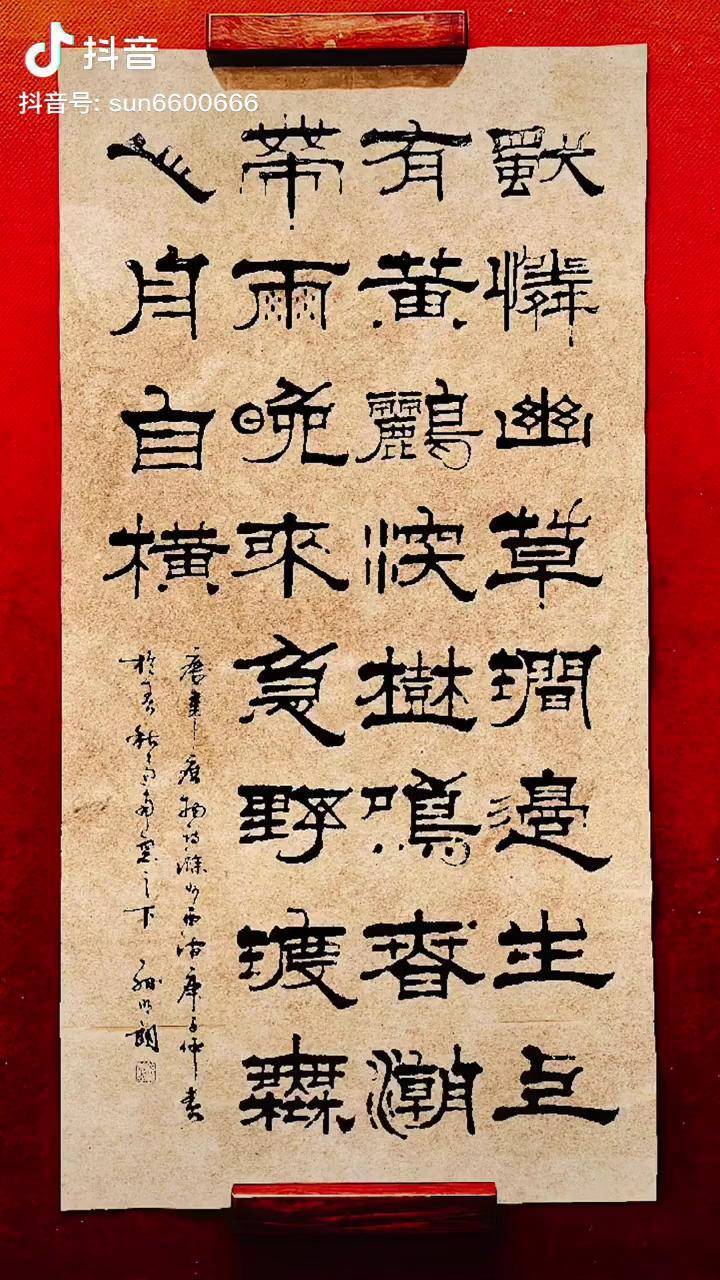 抖音
抖音号: sun6600666
獨憐幽草澗邊生上
有黄鸝深樹鳴春潮
帶雨晚來急野渡無
人舟自橫
唐韋应物诗滁州西澗庚子仲春
於春秋之下